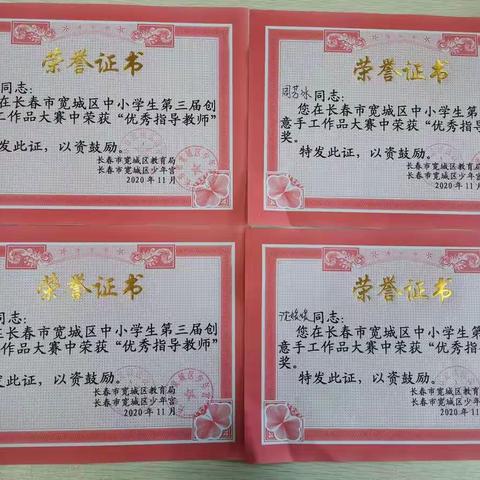 荣誉证书
同志:
在长春市宽城区中小学生第三届创
工作品大赛中荣获“优秀指导教师”
发此证,以资鼓励。
长春市宽城区教育局
长春市宽城区少年宫
2020年11月
荣誉证书
同志:
您在长春市宽城区中小学生第
意手工作品大赛中荣获“优秀指
奖。
特发此证,以资鼓励。
长春市宽城区教育
长春市宽城区少年
2020年11
荣誉证书
同志:
在长春市宽城区中小学生第三届创
工作品大赛中荣获“优秀指导教师”
发此证,以资鼓励。
长春市宽城区教育局
长春市宽城区少年宫
2020年11月
荣誉证书
同志:
您在长春市宽城区中小学生第
意手工作品大赛中荣获“优秀指
奖。
特发此证,以资鼓励。
长春市宽城区教育
长春市宽城区少年
2020年11